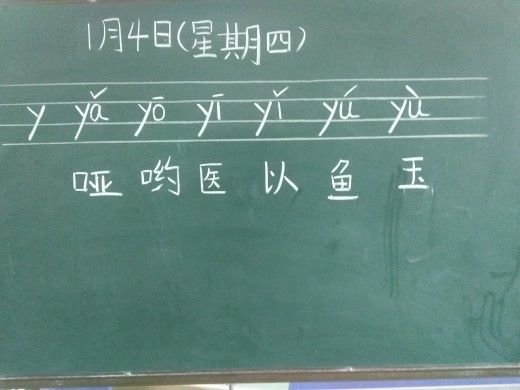 1月4日(星期四)
y yǎ yō yī yǐ yú yù
哑 哟 医 以 鱼 玉